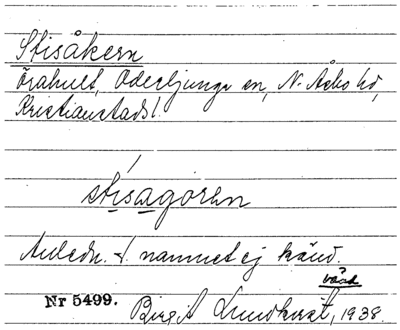 Stisåkern
Örahult, Oderljunga sn, N. Åsbo hd,
Kristianstads l.
stisagoren
Anledn. t. namnet ej känd.
Nr 5499. Birgit Lundkvist, 1938